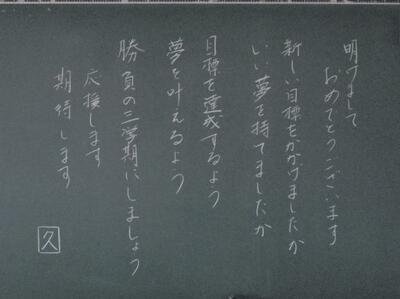 明けまして
おめでとうございます
新しい目標をかかげましたか
いい夢を持てましたか
目標を達成するよう
夢を叶えるよう
勝負の三学期にしましょう
応援します
期待します
久